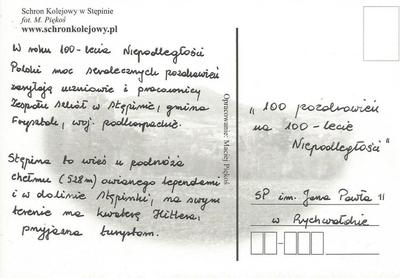 Schron Kolejowy w Stępinie
fot. M. Piękoś
www.schronkolejowy.pl
W roku 100-lecia Niepodległości
Polski moc serdecznych pozdrowień
zasyłają uczniowie i pracownicy
Zespołu Szkół w Stępinie, gmina
Frysztak, woj. podkarpackie.
Stępina to wieś u podnóża
Chełmu (528 m) owianego legendami
i w dolinie Stępinki, na swym
terenie ma kwaterę Hitlera,
przyjazna turystom.
Opracowanie: Maciej Piękoś
"100 pozdrowień
na 100-lecie
Niepodległości"
SP im. Jana Pawła II
w Rychwałdzie